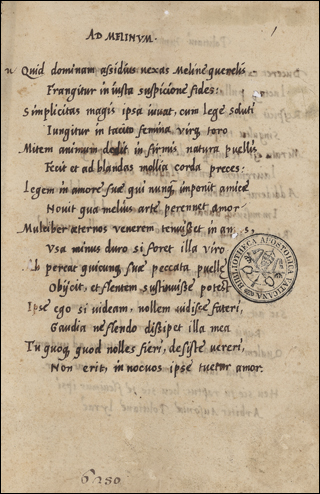 AD MELINUM.
1
n Quid dominam assiduis vexas Meline querelis
Frangitur iniusta suspicione fides:
Simplicitas magis ipsa iuvat, cum lege soluti
Iungitur in tacito femina virq toro
Mitem animum dedit infirmis natura puellis
Fecit et ad blandas mollia corda preces:
Legem in amore suę qui nunq imponit amicę
Novit qua melius arte perennet amor
Mulciber ęternos venerem tenuisset in
Usa minus duro si foret illa viro
pereat quicunq suę peccata puellę
Obijcit, et flentem sustinuisse potest
Ipse ego si videam, nollem vidisse fateri,
Gaudia ne flendo dissipet illa mea
Tu quoq, quod nolles fieri, desiste vereri,
Non erit, in nocuos ipse tuetur amor.
BIBLIOTHECA APOSTOLICA VATICANA